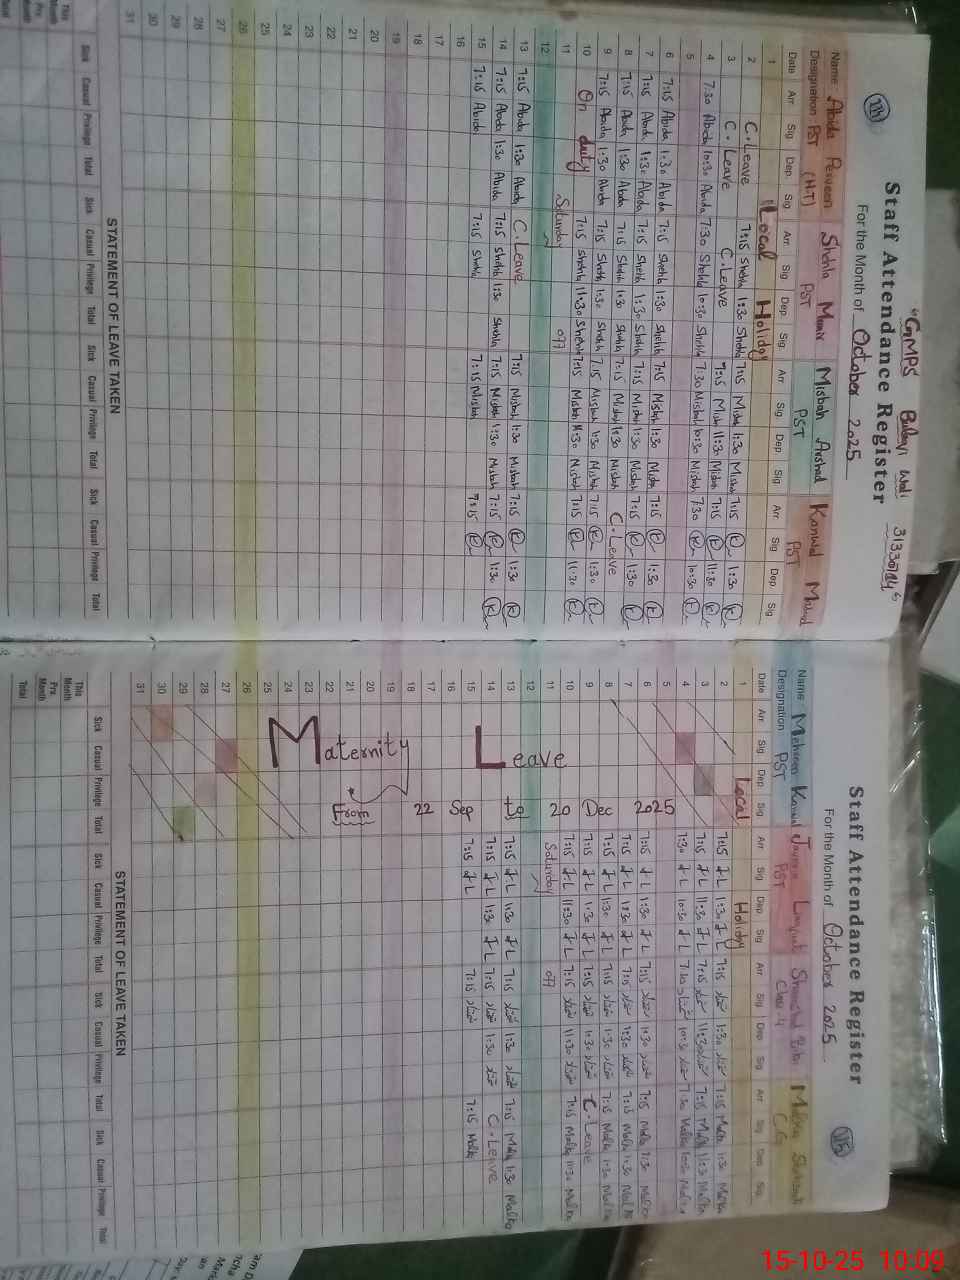 "GMPS Wali 31330714"
Staff Attendance Register
For the Month of October 2025
Name Abida Perveen Shehla Munir Misbah Arshad Kanwal
Designation PST (H.T) PST PST PST
Date Arr Sig Dep. Sig Arr Sig Dep. Sig Arr Sig Dep. Sig Arr Sig Dep. Sig
1 Local Holiday
2 C. Leave 7:15 Shehla 1:30 Shehla 7:15 Misbah 1:30 Misbah 7:15 1:30
3 C. Leave C. Leave 7:15 Misbah 11:30 Misbah 7:15 11:30
4 7:30 Abida 10:30 Abida 7:30 Shehla 10:30 Shehla 7:30 Misbah 10:30 Misbah 7:30 10:30
5
6 7:15 Abida 1:30 Abida 7:15 Shehla 1:30 Shehla 7:15 Misbah 1:30 Misbah 7:15 1:30
7 7:15 Abida 1:30 Abida 7:15 Shehla 1:30 Shehla 7:15 Misbah 1:30 Misbah 7:15 1:30
8 7:15 Abida 1:30 Abida 7:15 Shehla 1:30 Shehla 7:15 Misbah 1:30 Misbah C. Leave
9 7:15 Abida 1:30 Abida 7:15 Shehla 1:30 Shehla 7:15 Misbah 1:30 Misbah 7:15 1:30
10 On duty 7:15 Shehla 11:30 Shehla 7:15 Misbah 11:30 Misbah 7:15 11:30
11 Saturday off
12
13 7:15 Abida 1:30 Abida C. Leave 7:15 Misbah 1:30 Misbah 7:15 1:30
14 7:15 Abida 1:30 Abida 7:15 Shehla 1:30 Shehla 7:15 Misbah 1:30 Misbah 7:15 1:30
15 7:15 Abida 7:15 Shehla 7:15 Misbah 7:15
16
17
18
19
20
21
22
23
24
25
26
27
28
29
30
31
STATEMENT OF LEAVE TAKEN
Sick Casual Privilege Total Sick Casual Privilege Total Sick Casual Privilege Total Sick Casual Privilege Total
This Month
Prv. Month
Total
Staff Attendance Register
For the Month of October 2025
Name Mehreen Kanwal Bibi Malka
Designation PST PST Class-4 CG
Date Arr Sig Dep Sig Arr Sig Dep. Sig Arr Sig Dep Sig Arr Sig Dep. Sig
1 Local Holiday
2 7:15 1:30 7:15 1:30 7:15 Malka 1:30 Malka
3 7:15 11:30 7:15 11:30 7:15 Malka 11:30 Malka
4 7:30 10:30 7:30 10:30 7:30 Malka 10:30 Malka
5
6 7:15 1:30 7:15 1:30 7:15 Malka 1:30 Malka
7 7:15 1:30 7:15 1:30 7:15 Malka 1:30 Malka
8 7:15 1:30 7:15 1:30 7:15 Malka 1:30 Malka
9 7:15 1:30 7:15 1:30 C. Leave
10 7:15 11:30 7:15 11:30 7:15 Malka 11:30 Malka
11 Saturday off
12
13 7:15 1:30 7:15 1:30 7:15 Malka 1:30 Malka
14 7:15 1:30 7:15 1:30 C. Leave
15 7:15 7:15 7:15 Malka
16
17
18
19
20
21
22
23
24
25
26
27
28
29
30
31
Maternity Leave
From 22 Sep to 20 Dec 2025
STATEMENT OF LEAVE TAKEN
Sick Casual Privilege Total Sick Casual Privilege Total Sick Casual Privilege Total Sick Casual Privilege Total
This Month
Prv. Month
Total
15-10-25 10:09